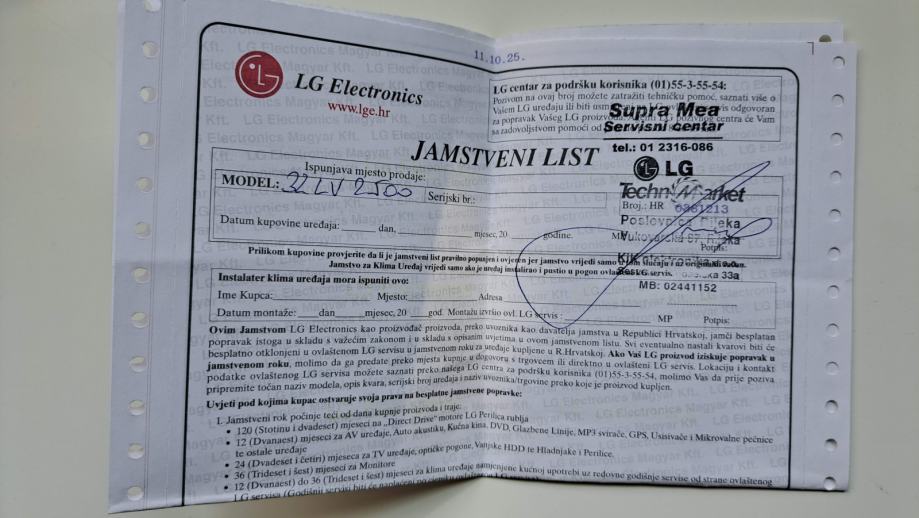 11.10.25.
LG Electronics
www.lge.hr
LG centar za podršku korisnika (01)55-3-55-54:
Pozivom na ovaj broj možete zatražiti tehničku pomoć, saznati više o
Vašem LG uređaju ili biti
za popravak Vašeg LG proizvoda.
sa zadovoljstvom pomoći od
Supra Mea
Servisni centar
tel.: 01 2316-086
LG
JAMSTVENI LIST
Ispunjava mjesto prodaje:
MODEL: 32LV2500 Serijski br.:
TechnoMarket
Broj.: HR 0381213
Poslovnica Rijeka
Vukovarska Rijeka
Datum kupovine uređaja: dan, mjesec, 20 godine. Potpis:
Prilikom kupovine provjerite da li je jamstveni list pravilno popunjen i ovjeren jer jamstvo vrijedi samo u tom slučaju i uz
Jamstvo za Klima Uređaj vrijedi samo ako je uređaj instalirao i pustio u pogon ovlašteni LG servis.
33a
MB: 02441152
Instalater klima uređaja mora ispuniti ovo:
Ime Kupca: Mjesto: Adresa
Datum montaže: dan mjesec, 20 god. Montažu izvršio ovl. LG servis : MP Potpis:
Ovim Jamstvom LG Electronics kao proizvođač proizvoda, preko uvoznika kao davatelja jamstva u Republici Hrvatskoj, jamči besplatan
popravak istoga u skladu s važećim zakonom i u skladu s opisanim uvjetima u ovom jamstvenom listu. Svi eventualno nastali kvarovi biti će
besplatno otklonjeni u ovlaštenom LG servisu u jamstvenom roku za uređaje kupljene u R.Hrvatskoj. Ako Vaš LG proizvod iziskuje popravak u
jamstvenom roku, molimo da ga predate preko mjesta kupnje u dogovoru s trgovcem ili direktno u ovlašteni LG servis. Lokaciju i kontakt
podatke ovlaštenog LG servisa možete saznati preko našega LG centra za podršku korisnika (01)55-3-55-54, molimo Vas da prije poziva
pripremite točan naziv modela, opis kvara, serijski broj uređaja i naziv uvoznika/trgovine preko koje je proizvod kupljen.
Uvjeti pod kojima kupac ostvaruje svoja prava na besplatne jamstvene popravke:
1. Jamstveni rok počinje teći od dana kupnje proizvoda i traje:
• 120 (Stotinu i dvadeset) mjeseci na „Direct Drive" motore LG Perilica rublja
• 12 (Dvanaest) mjeseci za AV uređaje, Auto akustiku, Kućna kina, DVD, Glazbene Linije, MP3 svirače, GPS, Usisivače i Mikrovalne pećnice
te ostale uređaje
• 24 (Dvadeset i četiri) mjeseca za TV uređaje, optičke pogone, Vanjske HDD te Hladnjake i Perilice.
• 36 (Trideset i šest) mjeseci za Monitore
• 12 (Dvanaest) do 36 (Trideset i šest) mjeseci za klima uređaje namijenjene kućnoj upotrebi uz redovne godišnje servise od strane ovlaštenog
LG servisa